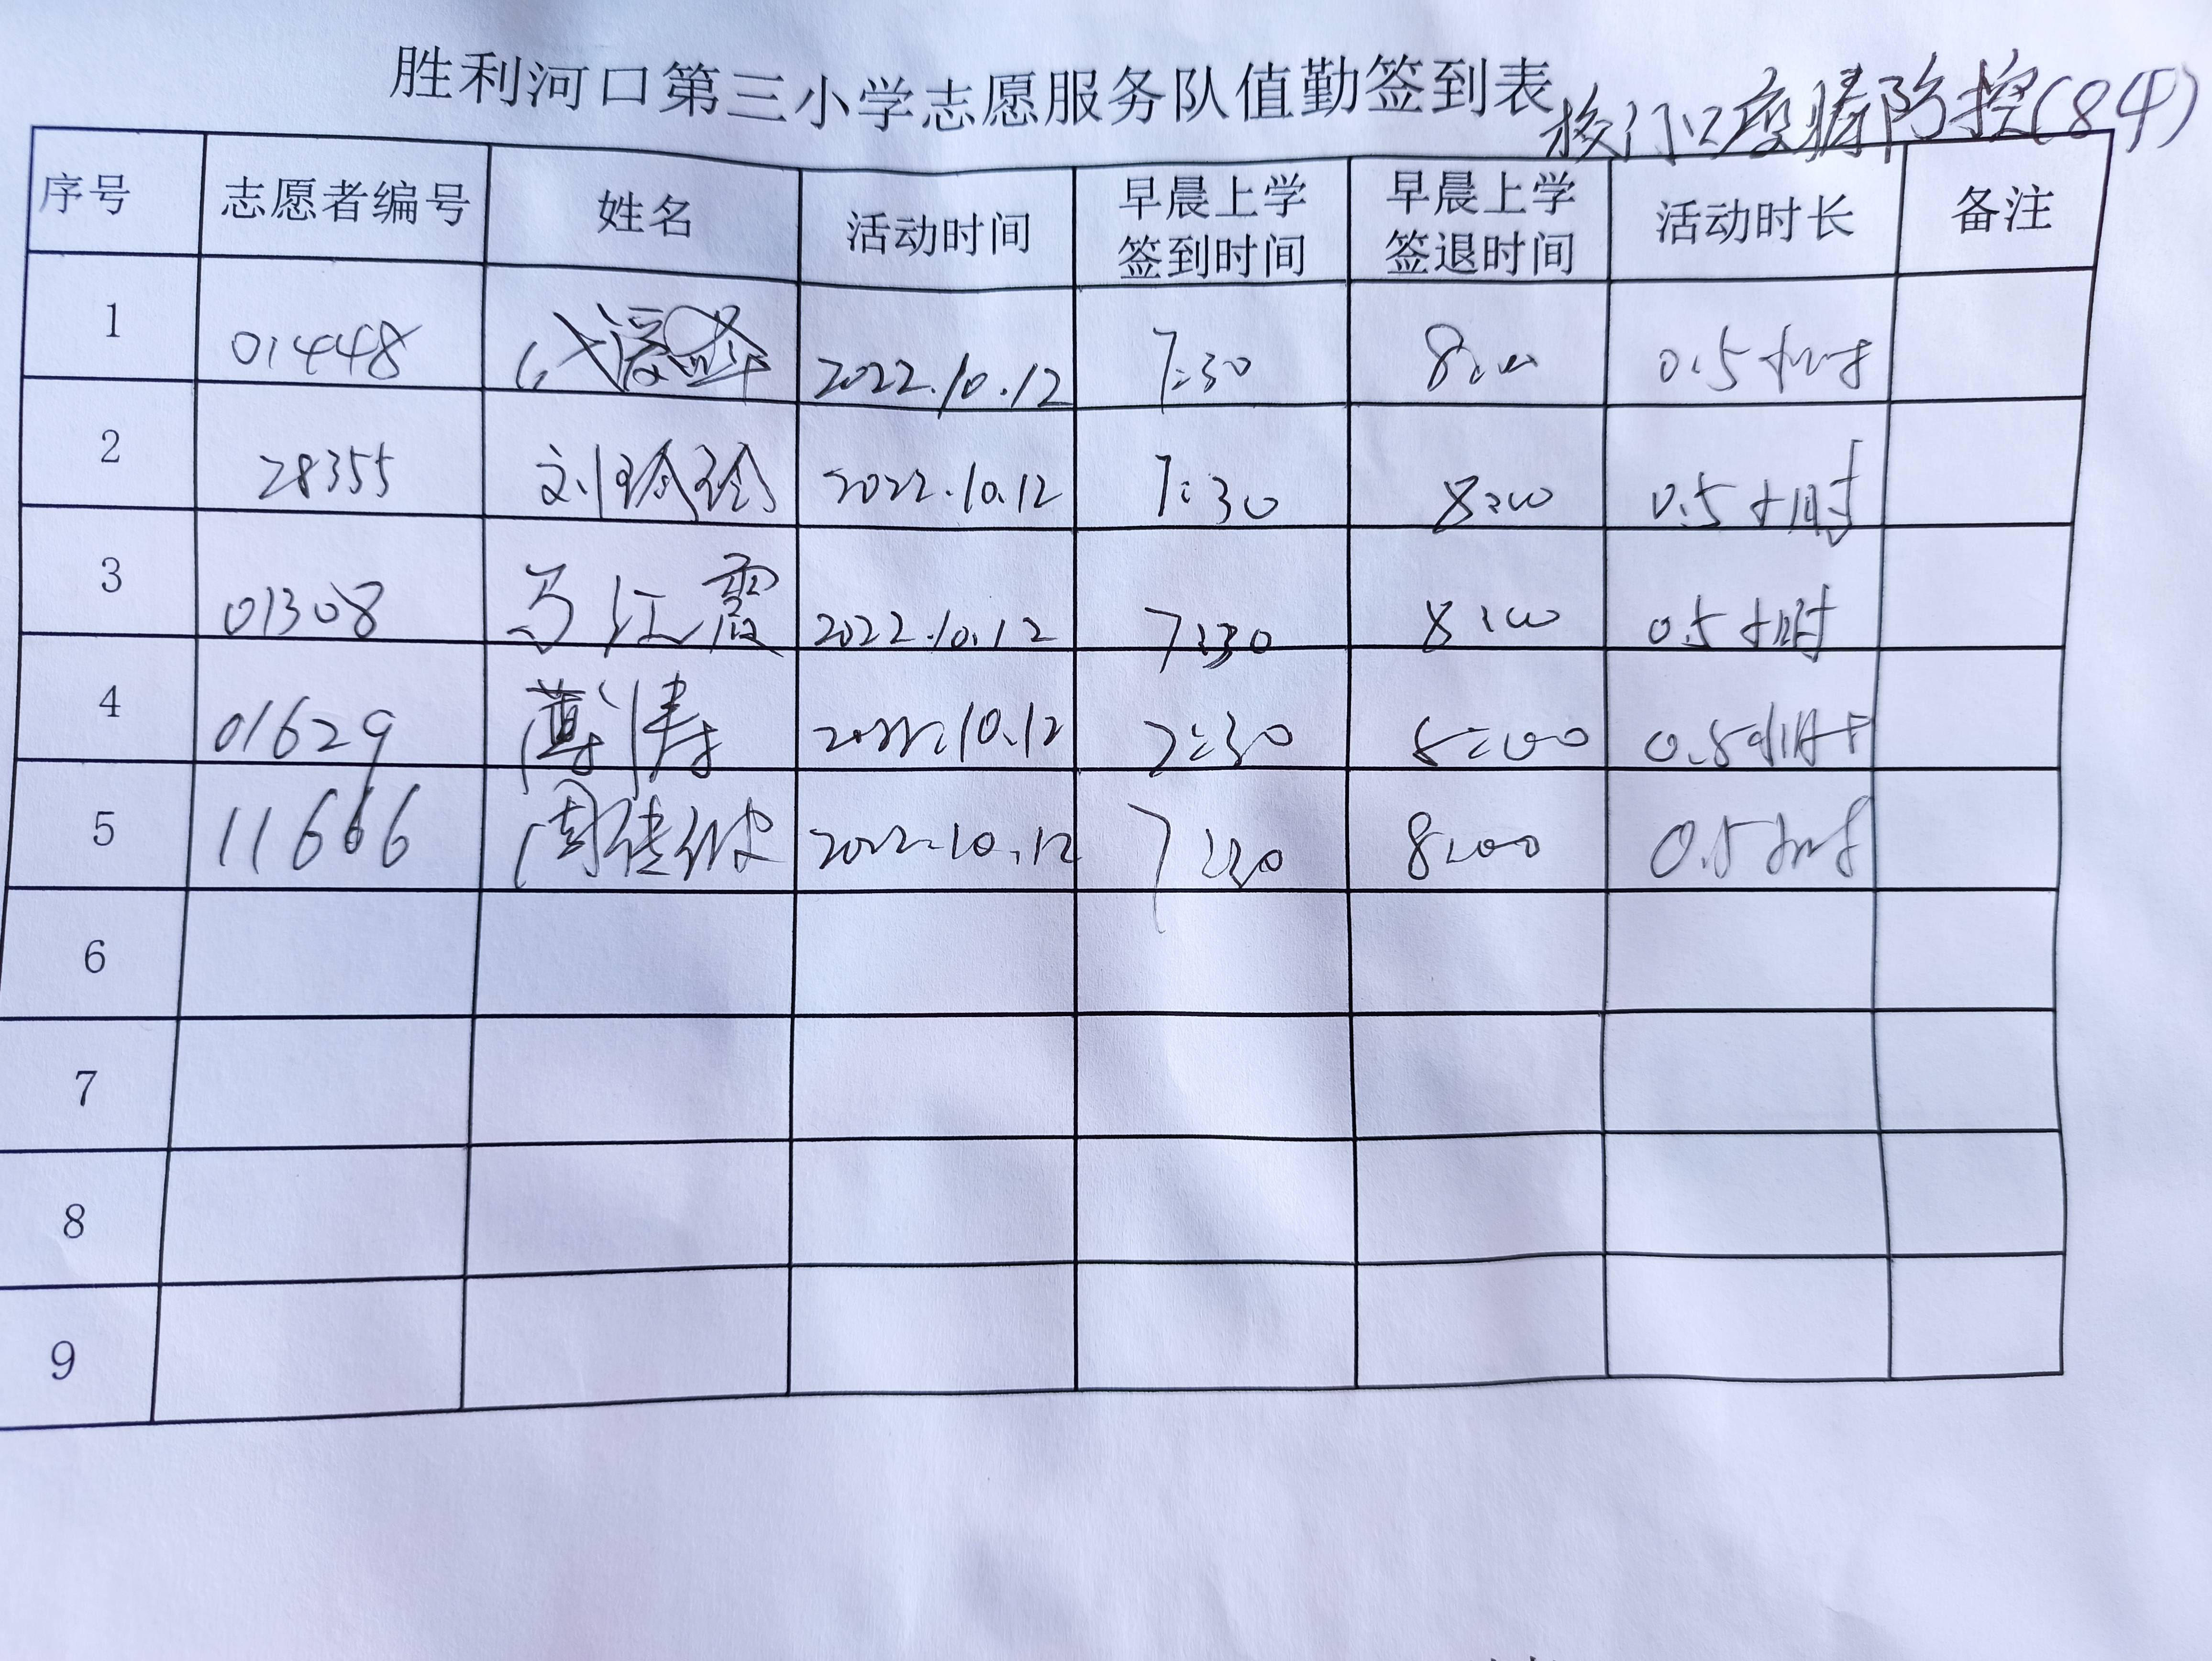 胜利河口第三小学志愿服务队值勤签到表
校门口疫情防控(84)
序号 志愿者编号 姓名 活动时间 早晨上学签到时间 早晨上学签退时间 活动时长 备注
1 01448 2022.10.12 7:30 8:00 0.5小时
2 28355 刘玲玲 2022.10.12 7:30 8:00 0.5小时
3 01308 马红霞 2022.10.12 7:30 8:00 0.5小时
4 01629 薄涛 2022.10.12 7:30 8:00 0.5小时
5 11666 2022.10.12 7:30 8:00 0.5小时
6
7
8
9